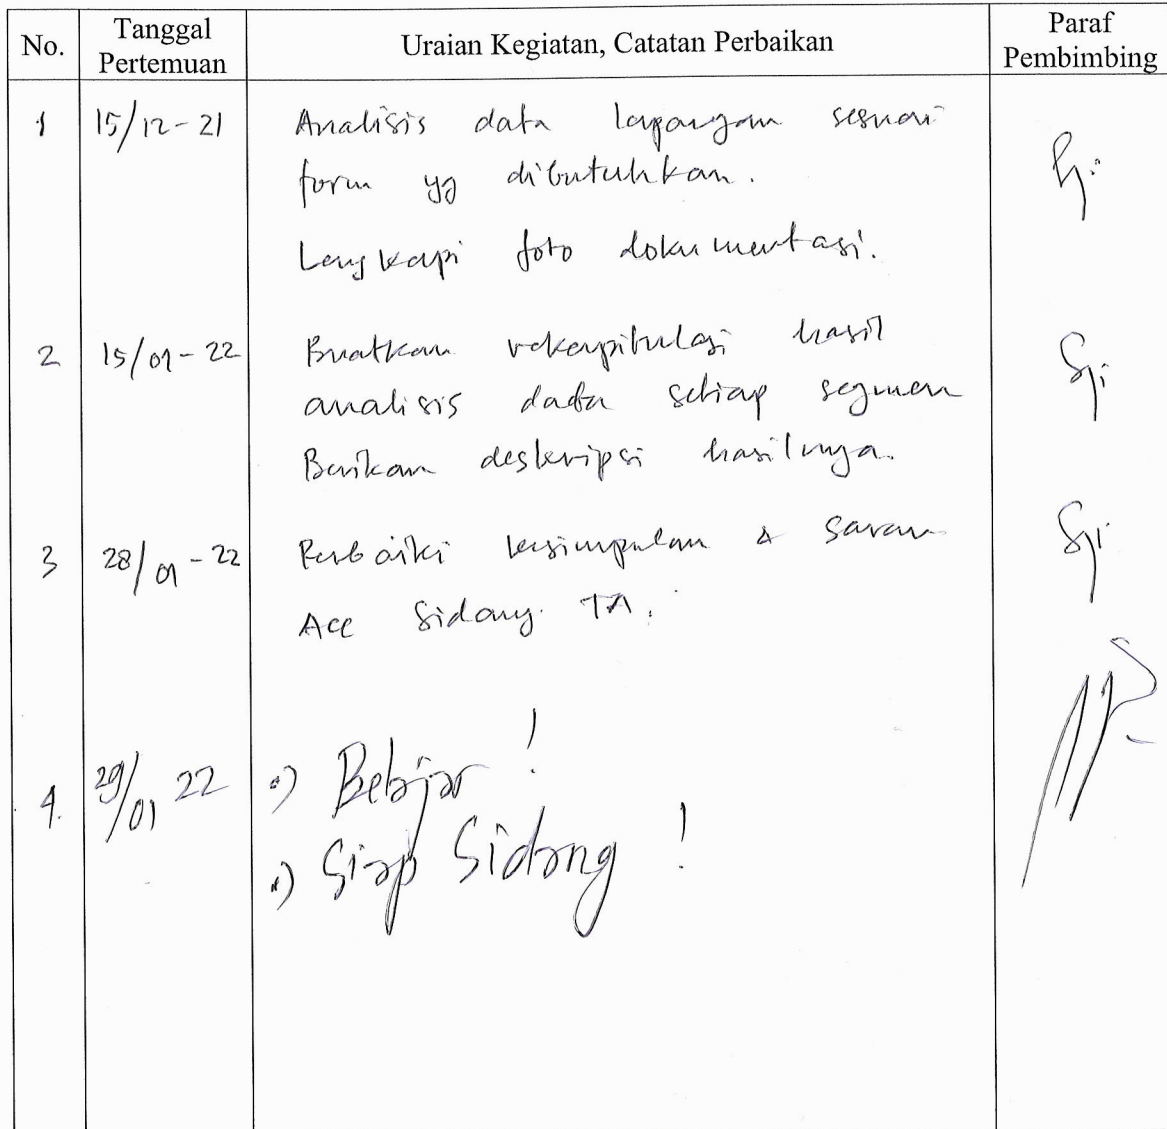 No. Tanggal Pertemuan Uraian Kegiatan, Catatan Perbaikan Paraf Pembimbing
1 15/12-21 Analisis data lapangan sesuai
form yg dibutuhkan.
Lengkapi foto dokumentasi.
2 15/01-22 Buatkan rekapitulasi hasil
analisis data setiap segmen
Berikan deskripsi hasilnya.
3 28/01-22 Perbaiki kesimpulan & saran
Acc Sidang TA.
4. 29/01 22 •) Belajar !
•) Siap Sidang !